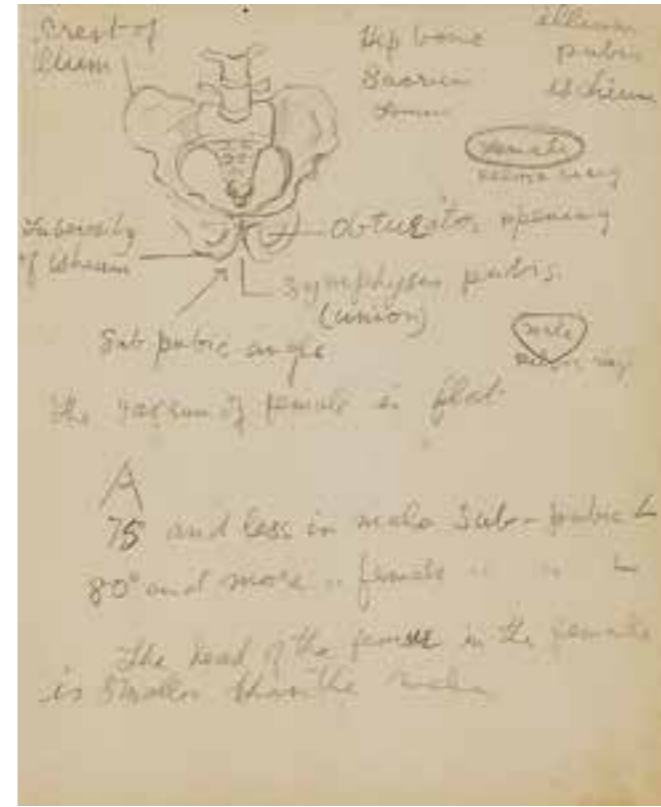 Crest of
Ilium
Hip bone
Sacrum
Femur
illium
pubis
ischium
female
pelvic ring
Tuberosity
of Ischium
obturator opening
Symphysis pubis
(union)
Sub pubic angle
male
pelvic ring
The sacrum of female is flat
75 and less in male Sub-pubic ∠
80° and more " female " " ∠
The head of the femur in the female
is smaller than the male